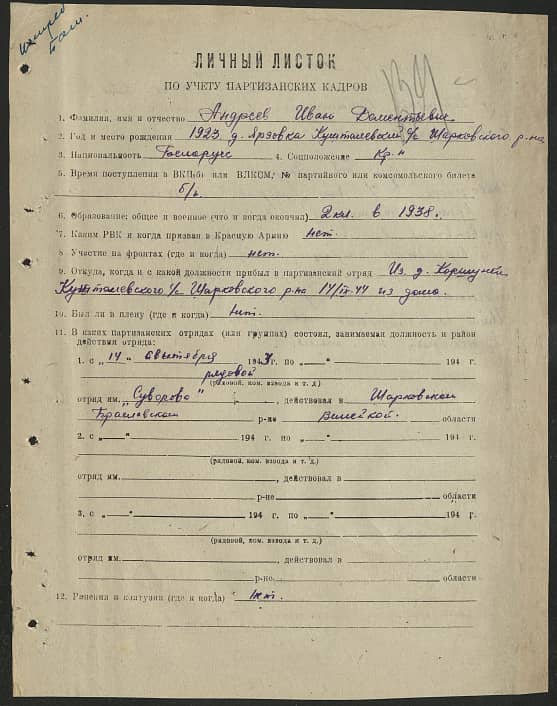 ЛИЧНЫЙ ЛИСТОК
ПО УЧЕТУ ПАРТИЗАНСКИХ КАДРОВ
1. Фамилия, имя и отчество Андреев Иван Дементьевич
2. Год и место рождения 1923 д. Кушталевский с/с Шарковского р-на
3. Национальность Белорус 4. Соцположение кр-н
5. Время поступления в ВКП(б) или ВЛКСМ, № партийного или комсомольского билета
б/п
6. Образование: общее и военное (что и когда окончил) 2 кл. в 1938.
7. Каким РВК и когда призван в Красную Армию нет.
8 Участие на фронтах (где и когда) нет.
9. Откуда, когда и с какой должности прибыл в партизанский отряд Из д.
Кушталевского с/с Шарковского р-на из дома.
10. Был ли в плену (где и когда) нет.
11. В каких партизанских отрядах (или группах) состоял, занимаемая должность и район
действия отряда:
1. с „14" сентября 1943 г. по „ " 194 г.
рядовой
(рядовой, ком. взвода и т. д.)
отряд им. „Суворова" , действовал в Шарковском
Браславском р-не Вилейской области
2. с „ " 194 г. по „ " 194 г.
(рядовой, ком. взвода и т. д.)
отряд им. , действовал в
р-не области
3. с „ " 194 г. по „ " 194 г.
(рядовой, ком. взвода и т. д.)
отряд им. , действовал в
р-не области
12. Ранения и контузии (где и когда) нет.